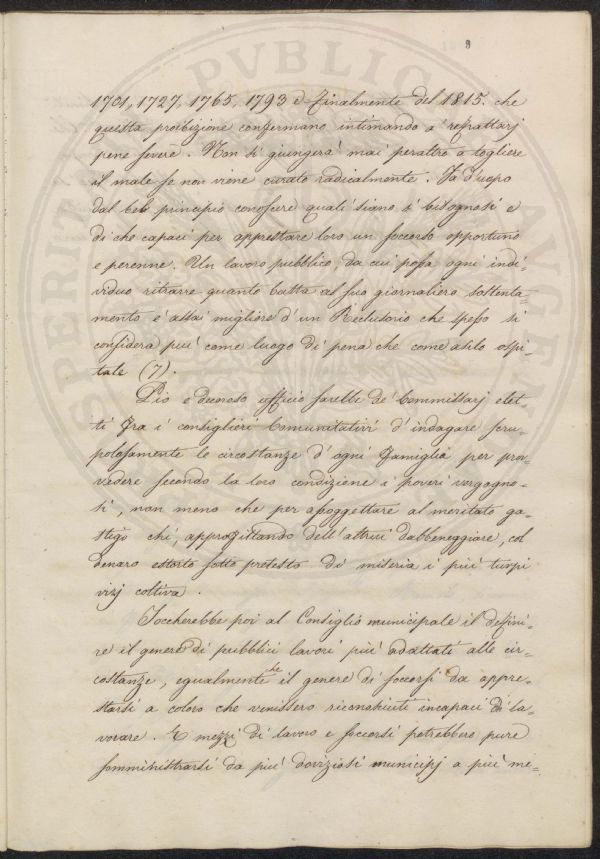 3
1701, 1727, 1765, 1793 e finalmente del 1815. che
questa proibizione confermano intimando a' refrattarj
pene severe. Non si giungerà mai peraltro a togliere
il male se non viene curato radicalmente. Fa d'uopo
dal bel principio conoscere quali siano i bisognosi e
di che capaci per apprestare loro un soccorso opportuno
e perenne. Un lavoro pubblico, da cui possa ogni indi-
viduo ritrarre quanto basta al suo giornaliero sostenta-
mento è assai migliore d'un Reclusorio che spesso si
considera più come luogo di pena che come asilo ospi-
tale (7).
Pio e decoroso ufficio sarebbe de' Commissarj elet-
ti fra i consiglieri Comunitativi d'indagare scru-
polosamente le circostanze d'ogni famiglia per prov-
vedere secondo la loro condizione i poveri vergogno-
si, non meno che per assoggettare al meritato ga-
stigo chi, approfittando dell'altrui dabbenaggine, col
denaro estorto sotto pretesto di miseria i più turpi
vizj coltiva.
Toccherebbe poi al Consiglio municipale il defini-
re il genere di pubblici lavori più adattati alle cir-
costanze, egualmente che il genere di soccorsi da appre-
starsi a coloro che venissero riconosciuti incapaci di la-
vorare. E mezzi di lavoro e soccorsi potrebbero pure
somministrarsi da più doviziosi municipj a più mi-